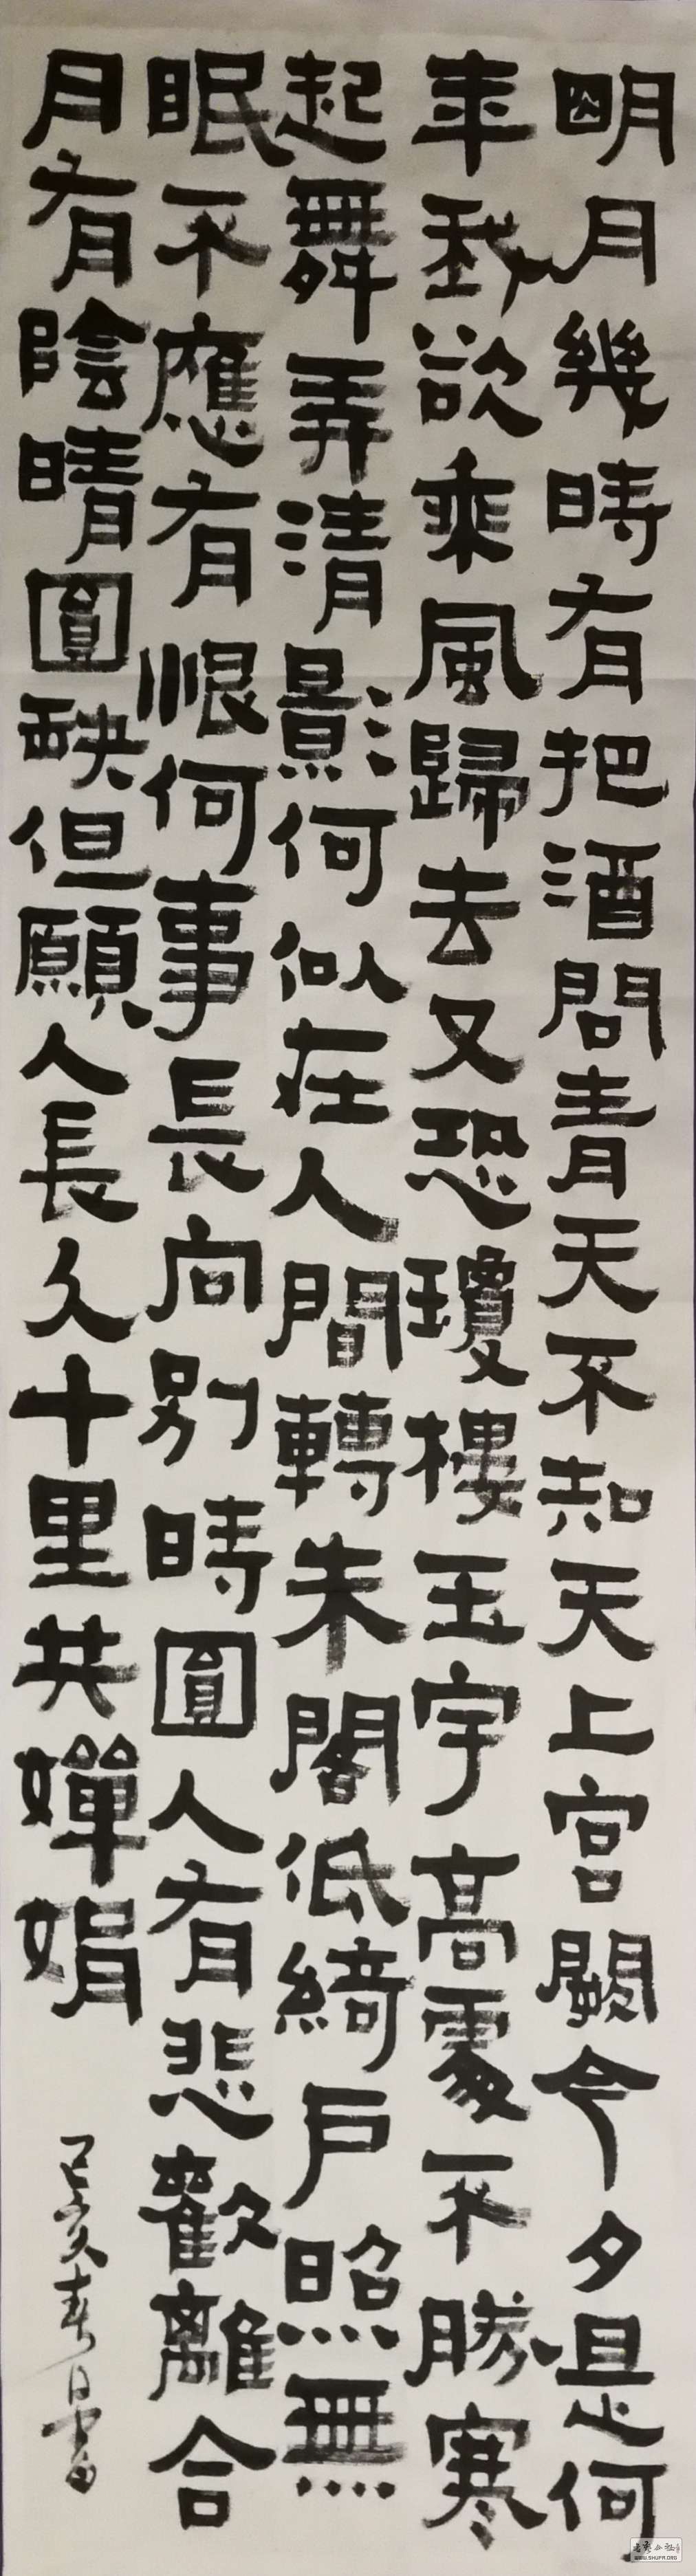 明月幾時有把酒問青天不知天上宮闕今夕是何
年我欲乘風歸去又恐瓊樓玉宇高處不勝寒
起舞弄清影何似在人間轉朱閣低綺戶照無
眠不應有恨何事長向別時圓人有悲歡離合
月有陰晴圓缺但願人長久十里共嬋娟
己亥春日書
WWW.SHUFA.ORG